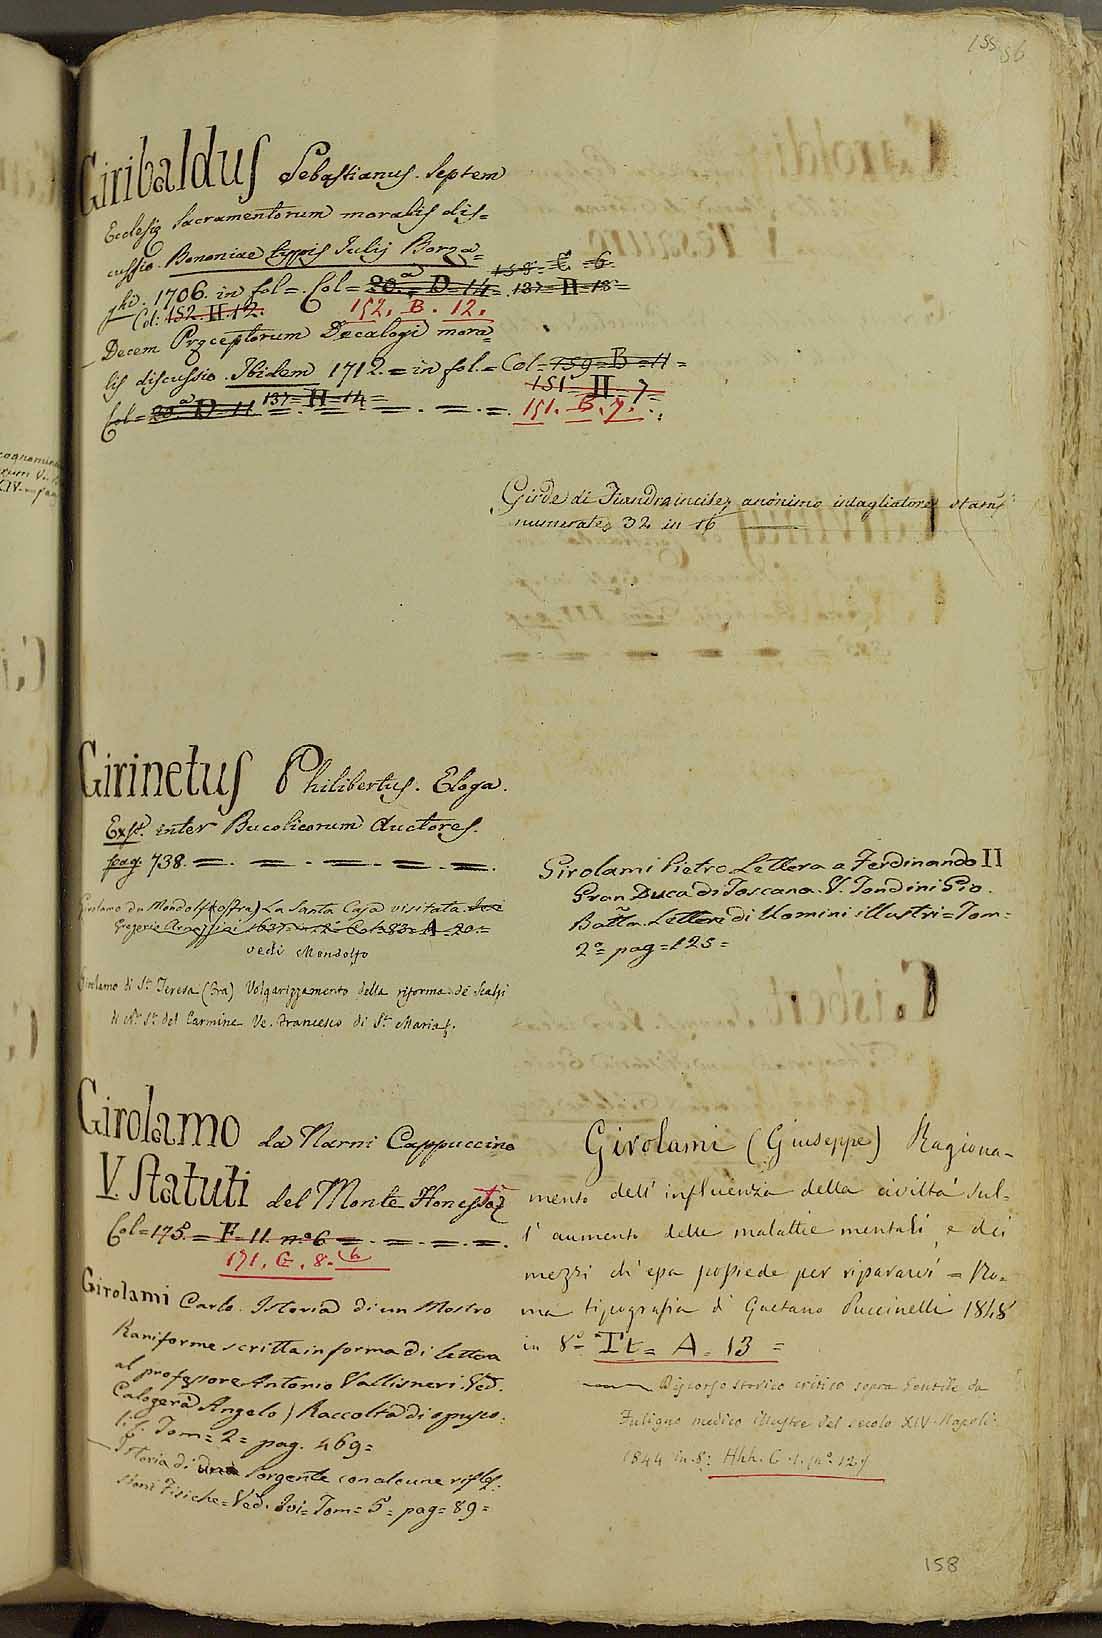 155 56
Giribaldus Sebastianus. Septem
Ecclesię Sacramentorum moralis dis=
cussio. Bononiae typis Julij Borza=
ghi. 1706. in fol=. Col= 20.a D=14= 137= H=18=
158= C =6=
Col: 152. H. 12. 152. B. 12.
Decem Pręceptorum Decalogi mora=
lis discussio. Ibidem 1712.= in fol.= Col=159=B=11=
151. H. 7=
Col= 20.a D=11 137= H=14= =. =. =. =. 151. B. 7.
Girde di Fiandra incise anonimo intagliatore
numerate 32 in 16
Girinetus Philibertus. Eloga.
Exst. inter Bucolicorum Auctores.
pag. 738. =. =. =. =. =.
Girolamo da Mondolfo (offra) La Santa Casa visitata. Jesi
Gregorio Arnazzini 1637= in 12= Col=83= A=20.=
vedi Mondolfo
Girolamo di Sta Teresa (Fra) Volgarizzamento della riforma de Scalzi
di N. Sa del Carmine Ve. Francesco di Sta Maria f.
Girolamo da Narni Cappuccino
V. Statuti del Monte Honestà
Col=175.= F=11. no6 =. =. =. =.
171. C. 8. (6
Girolami Carlo. Istoria di un Mostro
Raniforme scritta in forma di lettera
al professore Antonio Vallisneri. Ved.
Calogerà Angelo) Raccolta di opusco:
li f. Tom= 2= pag. 469=
— Istoria di una sorgente con alcune rifles:
sioni Fisiche= Ved. Ivi= Tom= 5= pag= 89=
Girolami Pietro. Lettera a Ferdinando II
Gran Duca di Toscana. V. Fondini Gio.
Batta. Lettere di Uomini illustri= Tom=
2o= pag=125=
Girolami (Giuseppe) Ragiona-
mento dell' influenza della civiltà sul=
l' aumento delle malattie mentali, e dei
mezzi ch' essa possiede per ripararvi = Ro=
ma tipografia di Gaetano Puccinelli 1848
in 8o= It= A= 13 =
— Discorso storico critico sopra Gentile da
Fuligno medico illustre del secolo XIV. Napoli.
1844 in 8: Hhh. C. 1. (no. 12)
158